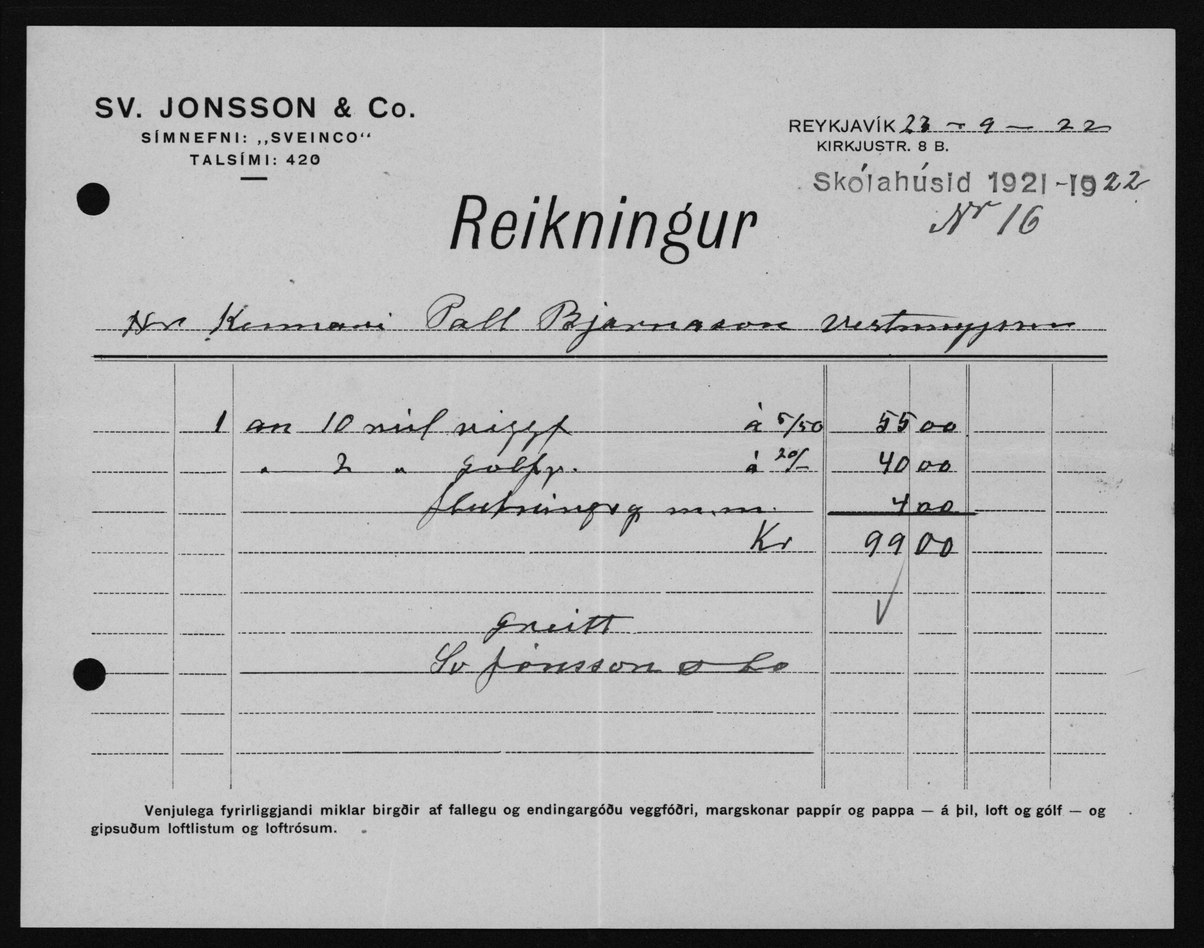 SV. JONSSON & Co.
SÍMNEFNI: „SVEINCO“
TALSÍMI: 420
REYKJAVÍK 23 - 9 - 22
KIRKJUSTR. 8 B.
Skólahúsid 1921-1922
Nr 16
Reikningur
Hr Kennari Pall Bjarnason
1 an 10 rúl viggf á 5/50 55 00
" 2 " golfp. á 20/- 40 00
flutningsg m.m. 4 00
Kr 99 00
greitt
Sv Jónsson & Co
Venjulega fyrirliggjandi miklar birgðir af fallegu og endingargóðu veggfóðri, margskonar pappír og pappa — á þil, loft og gólf — og
gipsuðum loftlistum og loftrósum.